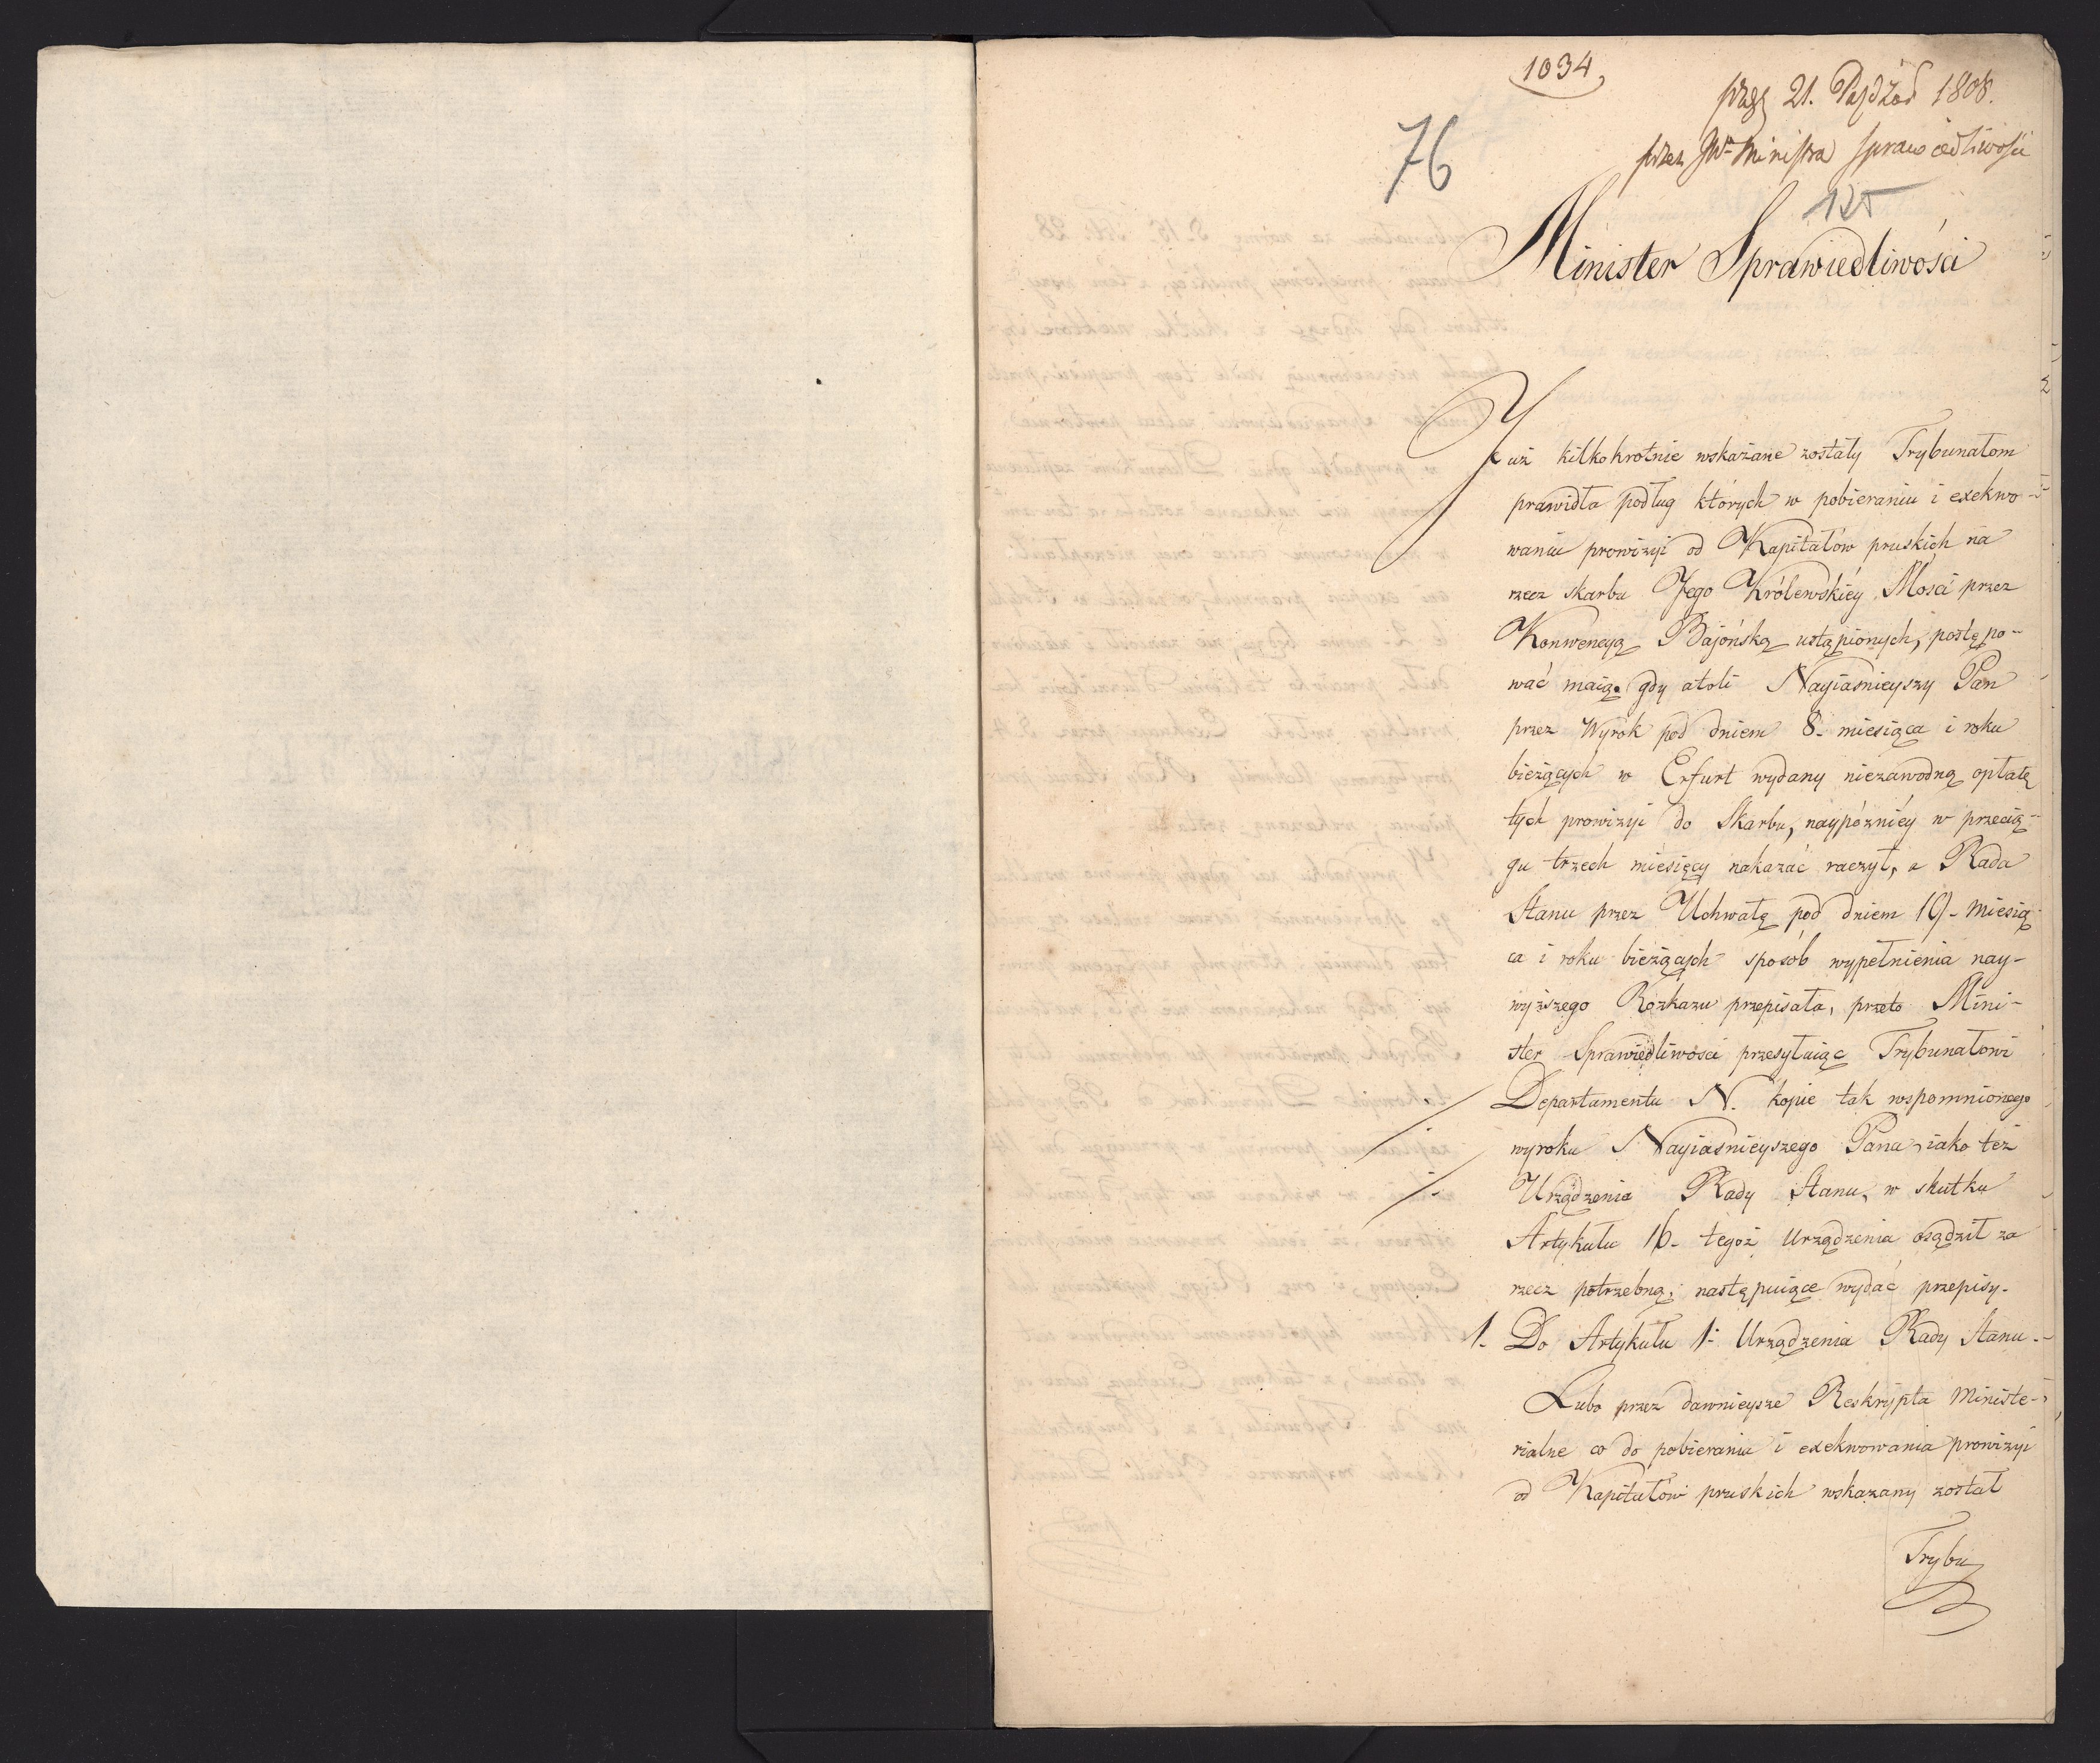 1034
21. Paździer 1808.
przez JW. Ministra Sprawiedliwości
76
125
Minister Sprawiedliwości
Już kilkokrotnie wskazane zostały Trybunałom
prawidła podług których w pobieraniu i exekwo-
waniu prowizyi od Kapitałów pruskich na
rzecz skarbu Jego Królewskiéy Mości przez
Konwencyą Bajońską ustąpionych, postępo-
wać maią. gdy atoli Nayiaśnieyszy Pan
przez Wyrok pod dniem 8. miesiąca i roku
bieżących w Erfurt wydany niezawodną opłatę
tych prowizyi do Skarbu, naypóźniéy w przecią-
gu trzech miesięcy nakazać raczył, a Rada
Stanu przez Uchwałę pod dniem 19. miesią-
ca i roku bieżących sposób wypełnienia nay-
wyższego Rozkazu przepisała, przeto Mini-
ster Sprawiedliwości przesyłaiąc Trybunałowi
Departamentu N. kopie tak wspomnionego
wyroku Nayiaśnieyszego Pana, iako też
Urządzenia Rady Stanu, w skutku
Artykułu 16. tegoż Urządzenia osądził za
rzecz potrzebną, następuiące wydać przepisy.
1. Do Artykułu 1. Urządzenia Rady Stanu.
Lubo przez dawnieysze Reskrypta Ministe-
rialne co do pobierania i exekwowania prowizyi
od Kapitałów pruskich wskazany został
Trybu